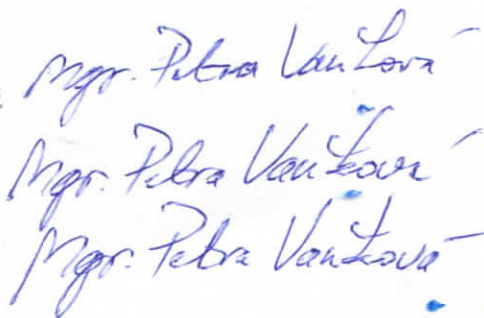 Mgr. Petra Vaňková
Mgr. Petra Vaňková
Mgr. Petra Vaňková